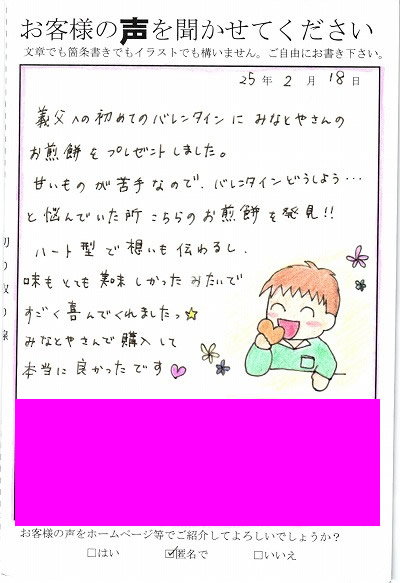 お客様の声を聞かせてください
文章でも箇条書きでもイラストでも構いません。ご自由にお書き下さい。
25年2月18日
義父への初めてのバレンタインにみなとやさんの
お煎餅をプレゼントしました。
甘いものが苦手なので、バレンタインどうしよう…
と悩んでいた所こちらのお煎餅を発見!!
ハート型で想いも伝わるし、
味もとても美味しかったみたいで
すごく喜んでくれましたっ☆
みなとやさんで購入して
本当に良かったです♡
お客様の声をホームページ等でご紹介してよろしいでしょうか?
□はい ☑匿名で □いいえ